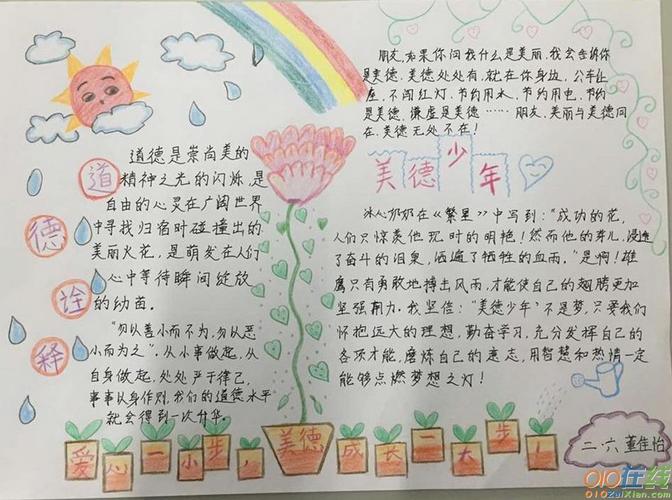 道德诠释
道德是崇尚美的
精神之光的闪烁,是
自由的心灵在广阔世界
中寻找归宿时碰撞出的
美丽火花,是萌发在人们
心中等待瞬间绽放
的幼苗。
"勿以善小而不为,勿以恶
小而为之"。从小事做起,从
自身做起,处处严于律己,
事事以身作则,我们的道德水平
就会得到一次升华。
朋友,如果你问我什么是美丽,我会告诉你
是美德。美德处处有,就在你身边,公车让
座,不闯红灯,节约用水,节约用电,节约
是美德,谦虚是美德……朋友,美丽与美德同
在,美德无处不在!
美德少年
冰心奶奶在《繁星》中写到:"成功的花,
人们只惊羡他现时的明艳!然而他的芽儿,浸透
了奋斗的泪泉,洒遍了牺牲的血雨。"是啊!雄
鹰只有勇敢地搏击风雨,才能使自己的翅膀更加
坚强有力。我坚信:"美德少年"不是梦,只要我们
怀抱远大的理想,勤奋学习,充分发挥自己的
各项才能,磨炼自己的意志,用智慧和热情一定
能够点燃梦想之灯!
爱心一小步,美德成长一大步!
二.六 董佳怡
010在线
010ZaiXian.com